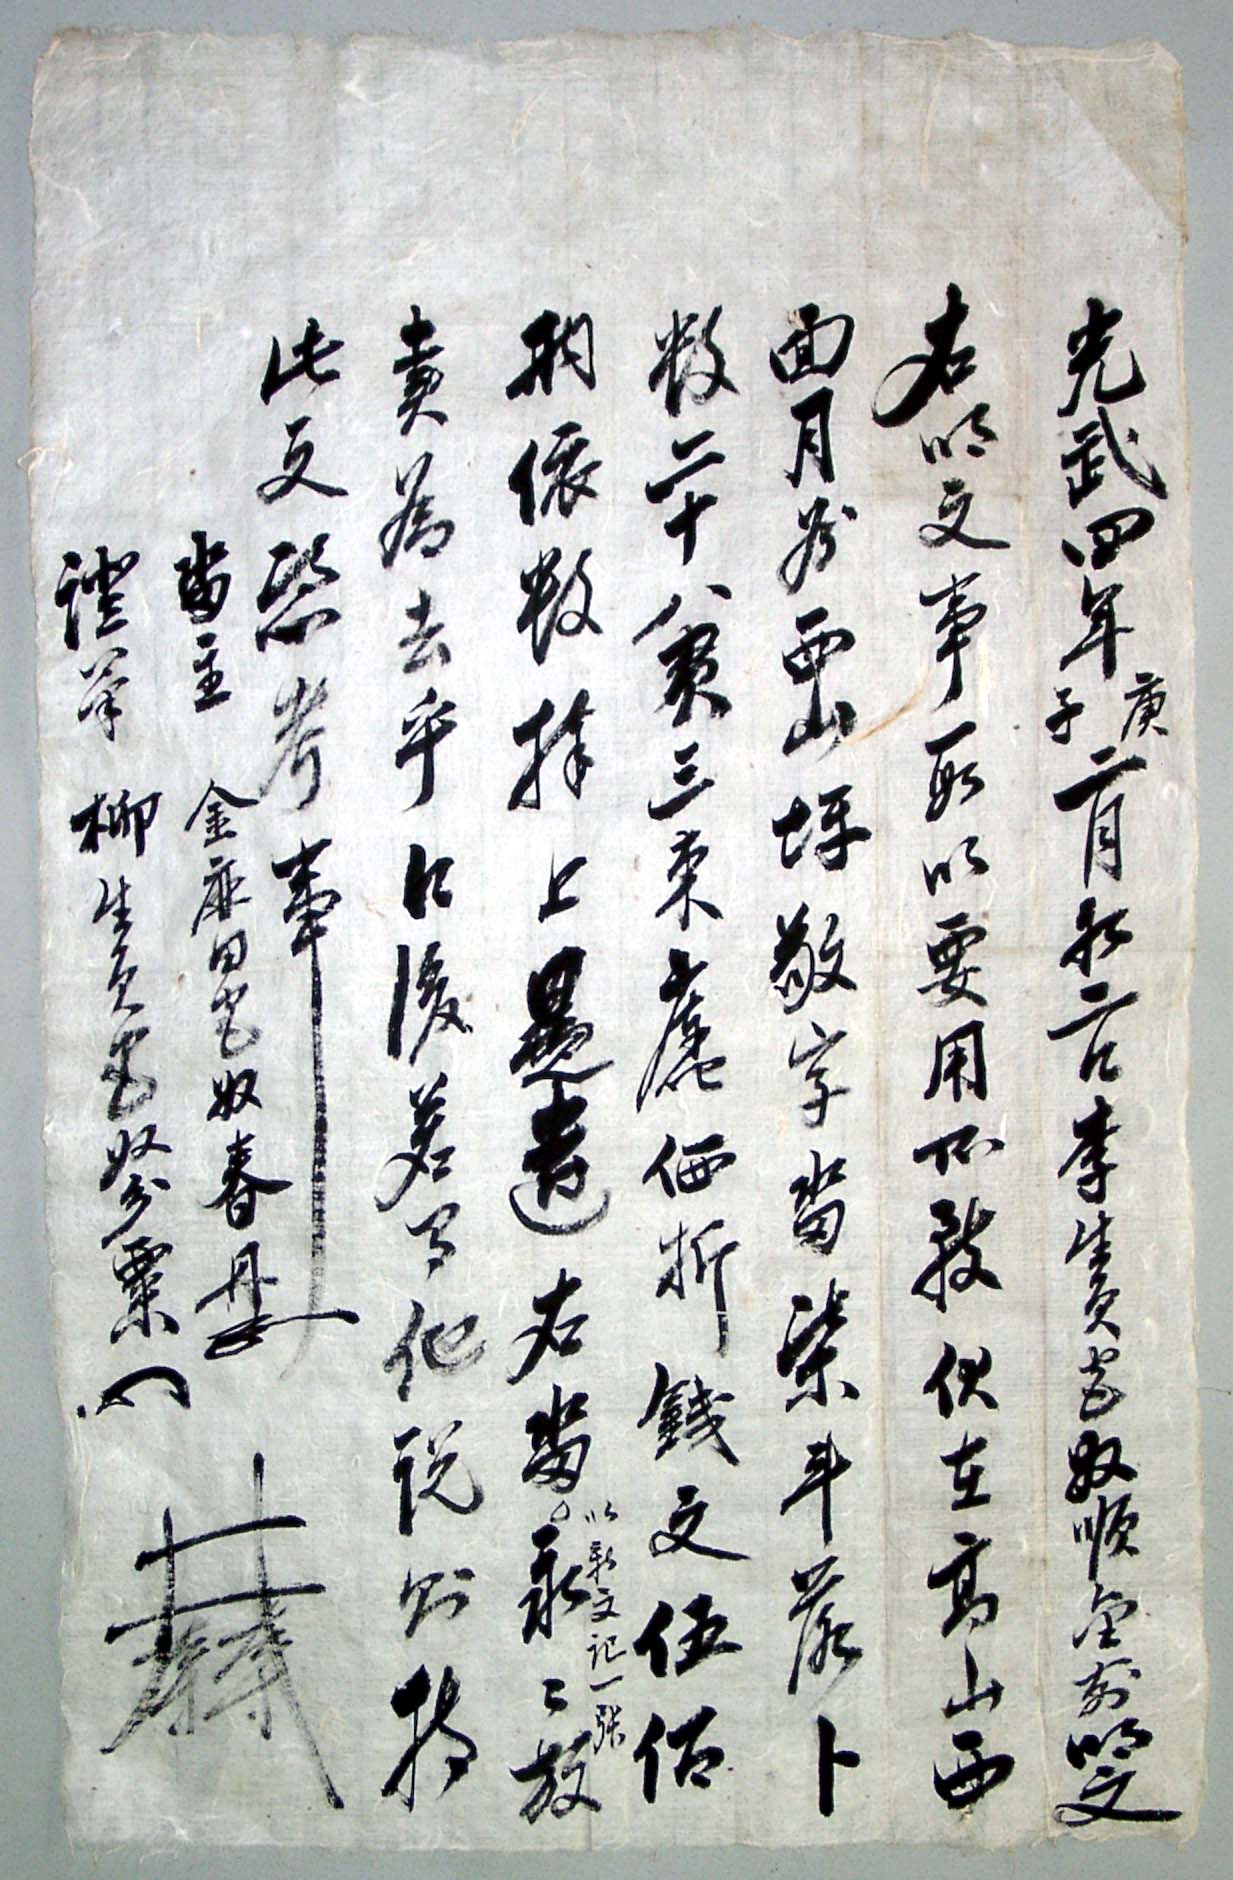 光武四年庚子二月初六日李生員宅奴順金前明文
右明文事段以要用所致伏在高山西
面月谷西山坪敬字畓柒斗落卜
數二十八負三束廤価折錢文伍佰
兩依數捧上是遣右畓以新文記一張永永放
賣爲去乎日後若有他說則持
此文憑考事
畓主 金庇田宅奴春丹
證筆 柳生員宅奴